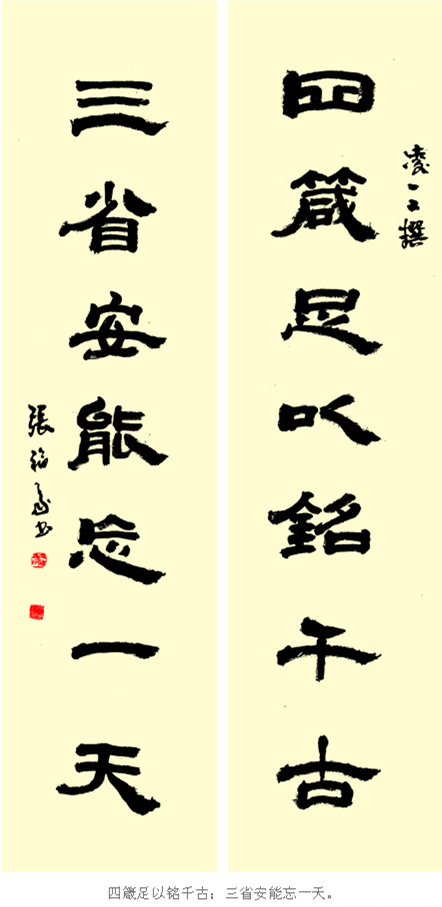 凌一 撰
四箴足以銘千古
三省安能忘一天
張福 书
四箴足以铭千古；三省安能忘一天。